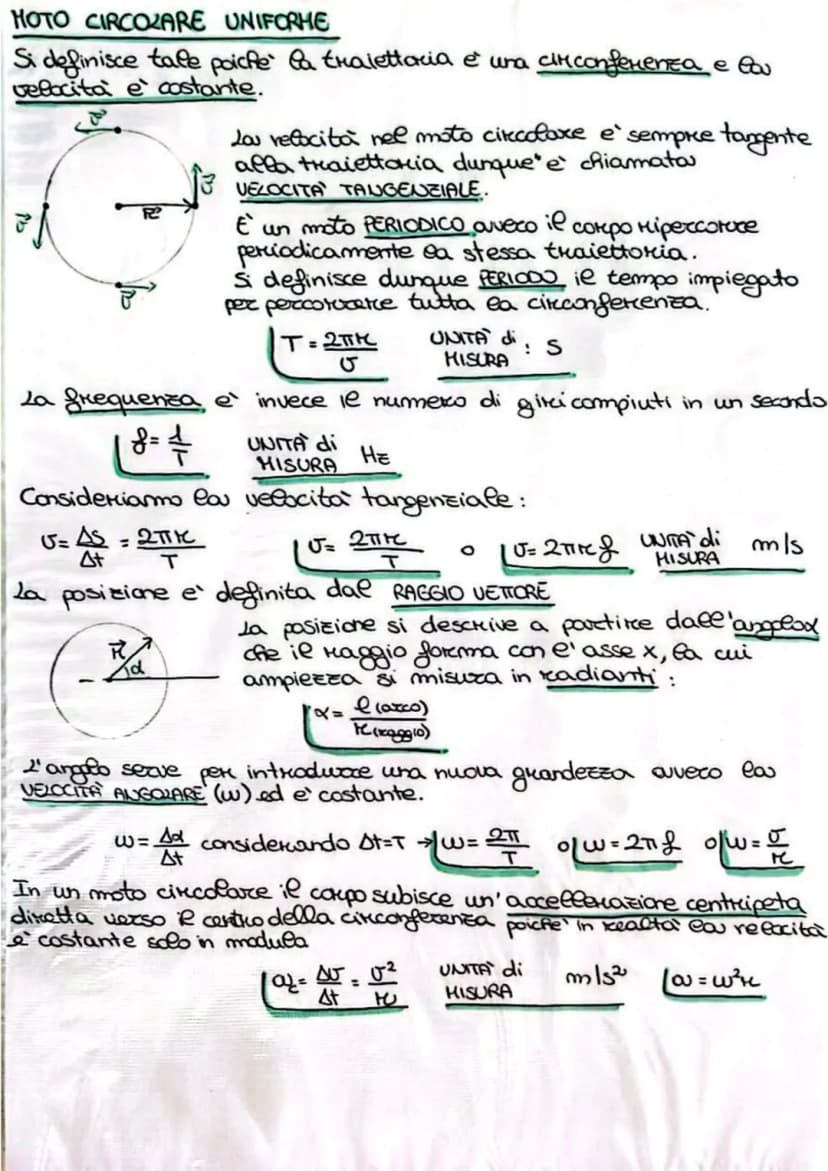 MOTO CIRCOLARE UNIFORME
Si definisce tale poiché la traiettoria è una circonferenza e la
velocità è costante.
v⃗
La velocità nel moto circolare è sempre tangente
alla traiettoria dunque è chiamata
v⃗
VELOCITÀ TANGENZIALE.
v⃗
R⃗
È un moto PERIODICO ovvero il corpo ripercorre
periodicamente la stessa traiettoria.
Si definisce dunque PERIODO il tempo impiegato
v⃗
per percorrere tutta la circonferenza.
T = 2πr/v UNITÀ di MISURA : S
La frequenza è invece il nummero di giri compiuti in un secondo
f = 1/T UNITÀ di MISURA Hz
Consideriamo la velocità tangenziale :
v = ΔS/Δt = 2πr/T v = 2πr/T o v = 2πrf UNITÀ di MISURA m/s
La posizione è definita dal RAGGIO VETTORE
La posizione si descrive a partire dall'angolo α
R⃗
che il raggio forma con l'asse x, la cui
α
ampiezza si misura in radianti :
α = l (arco)/r (raggio)
L'angolo serve per introdurre una nuova grandezza ovvero la
VELOCITÀ ANGOLARE (ω) ed è costante.
ω = Δα/Δt considerando Δt=T → ω = 2π/T o ω = 2πf o ω = v/r
In un moto circolare il corpo subisce un'accellerazione centripeta
diretta verso il centro della circonferenza poiché in realtà la velocità
è costante solo in modulo
a = Δv/Δt = v²/r UNITÀ di MISURA m/s² a = ω²r